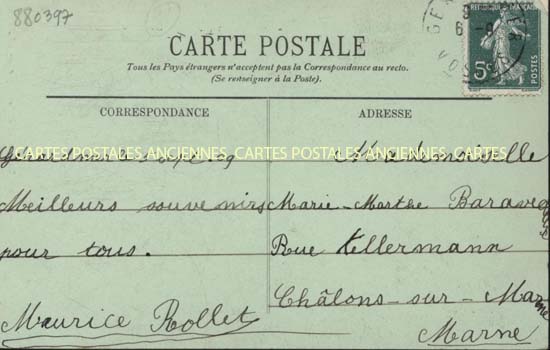 880397
CARTE POSTALE
Tous les Pays étrangers n'acceptent pas la Correspondance au recto.
(Se renseigner à la Poste).
RÉPUBLIQUE FRANÇAISE
5c
POSTES
CORRESPONDANCE
ADRESSE
CARTES POSTALES ANCIENNES CARTES POSTALES ANCIENNES CARTES
Gérardmer 09
Meilleurs souvenirs
pour tous.
Maurice Rollet
Mademoiselle
Marie-Marthe
Rue Kellermann
Châlons-sur-Marne
Marne